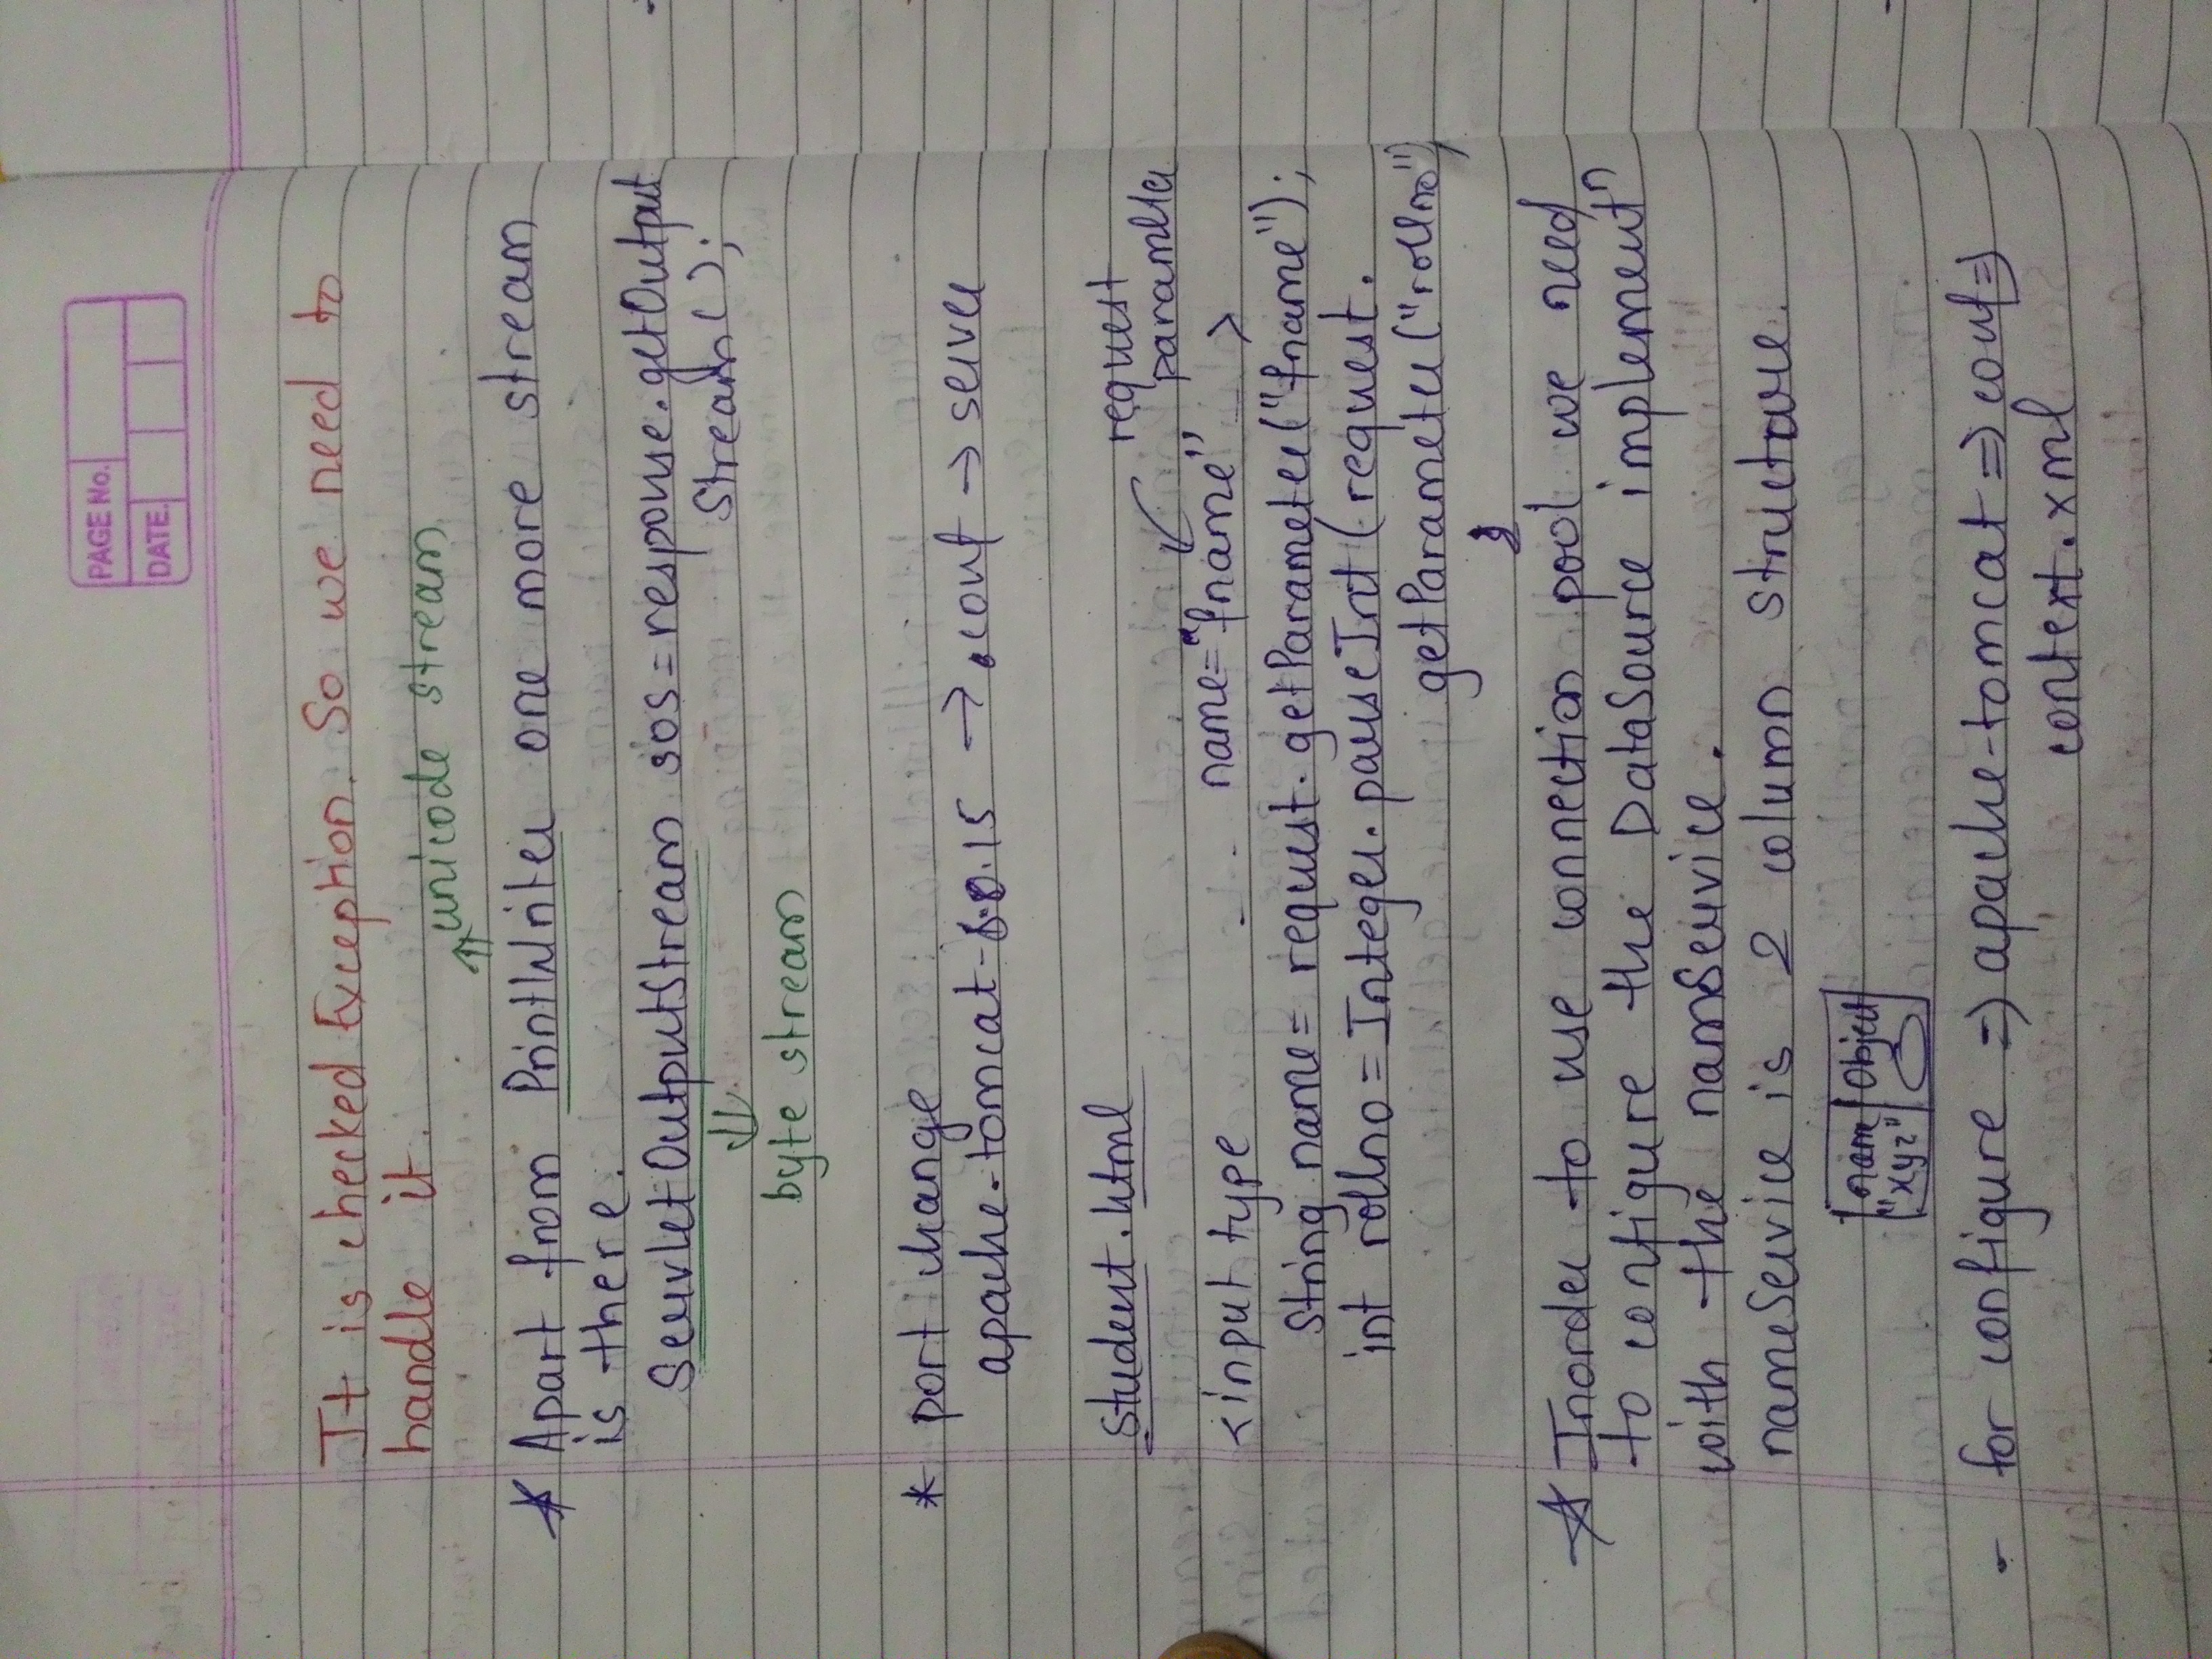 PAGE No.
DATE.
It is checked Exception. So we need to
handle it.
unicode stream
* Apart from PrintWriter one more stream
is there.
ServletOutputStream sos=response.getOutput
Stream();
byte stream
* port change
apache-tomcat-6.0.15 → conf → server
student.html
request
parameter
<input type - - name="fname" - >
String name= request.getParameter("fname");
int rollno=Integer.parseInt(request.
getParameter("rollno")
);
* Inorder to use connection pool we need
to configure the DataSource implementn
with the namService.
nameService is 2 column structure.
name Object
"xyz"
- for configure ⇒ apache-tomcat ⇒ conf ⇒
context.xml